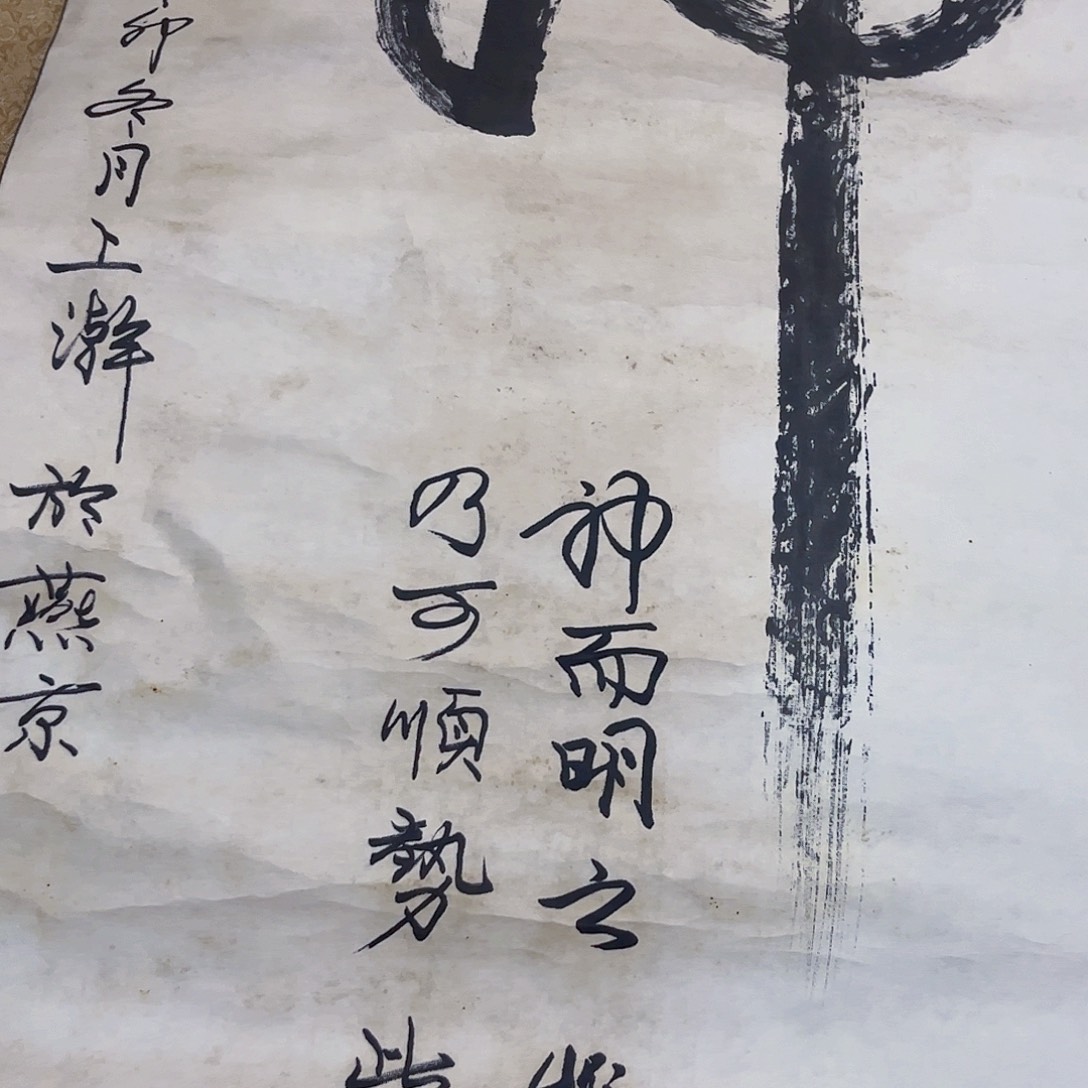 神而明之
乃可順勢
卯冬月上澣
於燕京